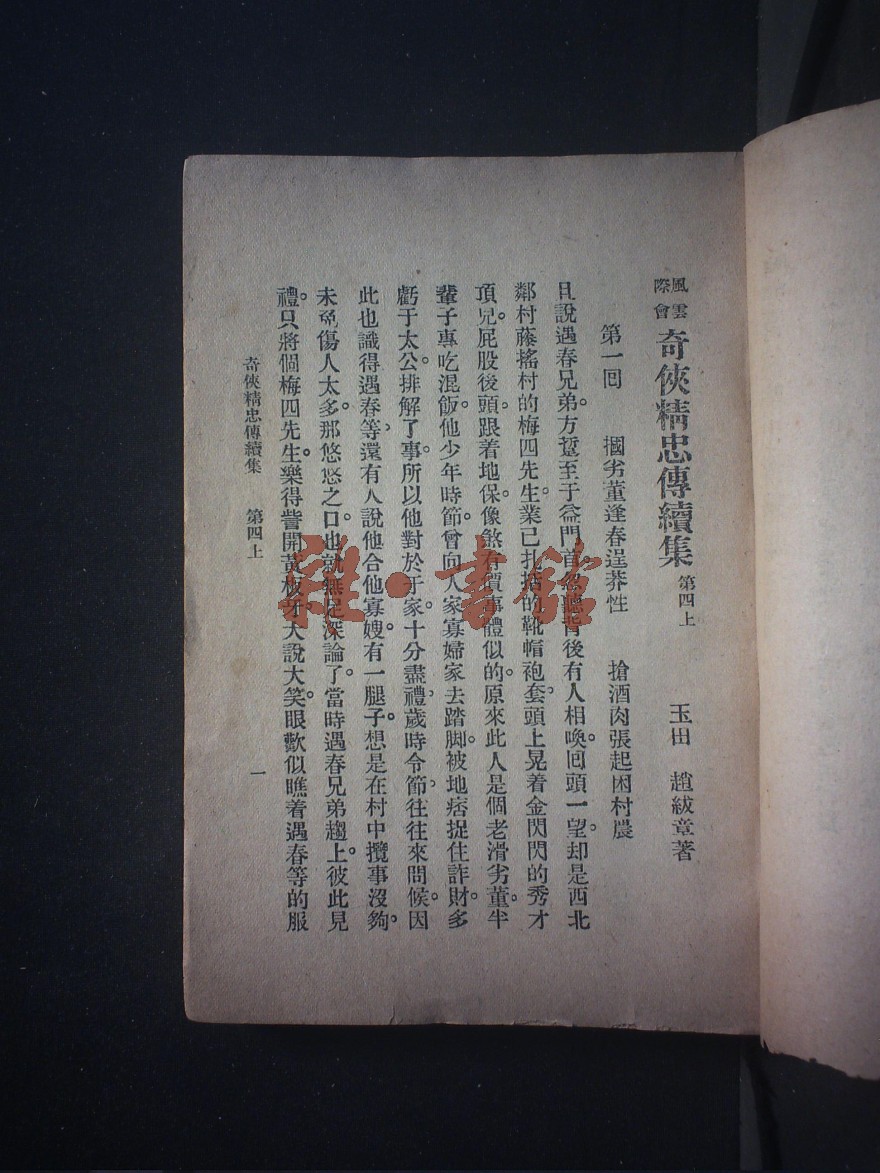 風雲際會 奇俠精忠傳續集 第四上
玉田 趙紱章著
第一回 摑劣董逢春逞莽性 搶酒肉張起困村農
且說遇春兄弟。方踅至于益門首。忽聽背後有人相喚。回頭一望。却是西北
鄰村藤搖村的梅四先生。業已扎括的靴帽袍套。頭上晃着金閃閃的秀才
頂兒。屁股後頭。跟着地保。像煞有價事體似的。原來此人是個老滑劣董。半
輩子專吃混飯。他少年時節。曾向人家寡婦家去踏脚。被地痞捉住詐財。多
虧于太公排解了事。所以他對於于家。十分盡禮。歲時令節。往往來問候。因
此也識得遇春等。還有人說他合他寡嫂。有一腿子。想是在村中攬事沒夠。
未免傷人太多。那悠悠之口。也就無足深論了。當時遇春兄弟趨上。彼此見
禮。只將個梅四先生。樂得訾開黃板牙。大說大笑。眼歡似瞧着遇春等的服
奇俠精忠傳續集 第四上
一
雜·書館